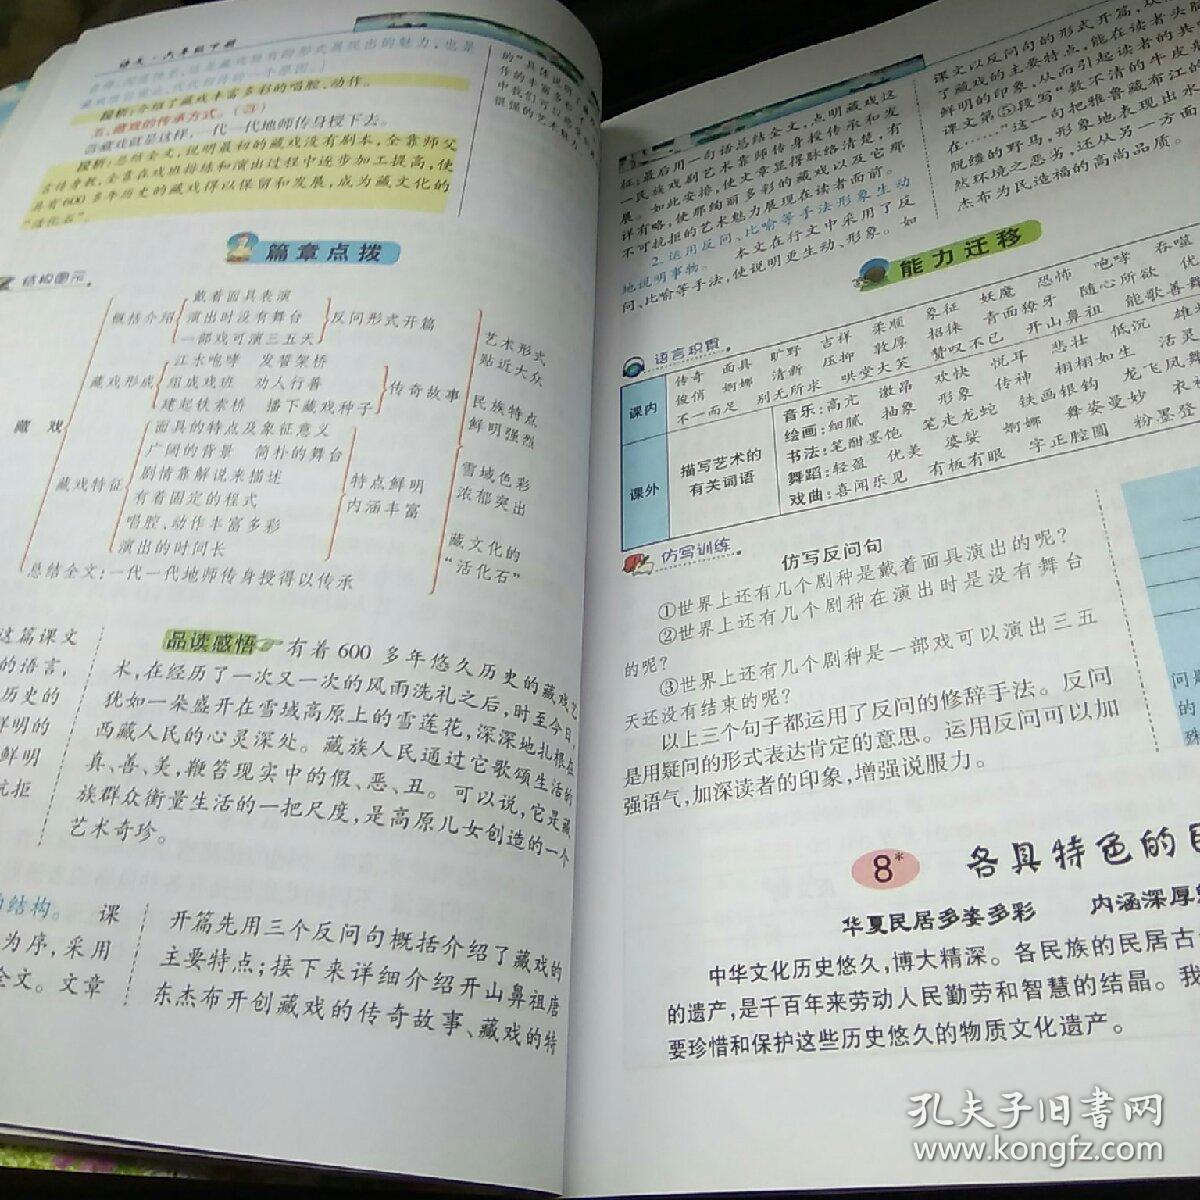 语文·六年级下册
段析:介绍了藏戏丰富多彩的唱腔、动作。
五、藏戏的传承方式。(㉓)
㉓藏戏就是这样,一代一代地师传身授下去。
段析:总结全文,说明最初的藏戏没有剧本,全靠师父
言传身教,全靠在戏班排练和演出过程中逐步加工提高,使
具有600多年历史的藏戏得以保留和发展,成为藏文化的
“活化石”。
篇章点拨
结构图示
藏戏
概括介绍
戴着面具表演
演出时没有舞台
一部戏可演三五天
反问形式开篇
藏戏形成
江水咆哮 发誓架桥
组成戏班 劝人行善
建起铁索桥 播下藏戏种子
传奇故事
藏戏特征
面具的特点及象征意义
广阔的背景 简朴的舞台
剧情靠解说来描述
有着固定的程式
唱腔、动作丰富多彩
演出的时间长
特点鲜明
内涵丰富
总结全文:一代一代地师传身授得以传承
艺术形式
贴近大众
民族特点
鲜明强烈
雪域色彩
浓郁突出
藏文化的
“活化石”
这篇课文
的语言,
历史的
鲜明的
鲜明
抗拒
品读感悟 有着600多年悠久历史的藏戏艺
术,在经历了一次又一次的风雨洗礼之后,时至今日,
犹如一朵盛开在雪域高原上的雪莲花,深深地扎根在
西藏人民的心灵深处。藏族人民通过它歌颂生活的
真、善、美,鞭笞现实中的假、恶、丑。可以说,它是藏
族群众衡量生活的一把尺度,是高原儿女创造的一个
艺术奇珍。
的结构。 课
为序,采用
全文。文章
开篇先用三个反问句概括介绍了藏戏的
主要特点;接下来详细介绍开山鼻祖唐
东杰布开创藏戏的传奇故事、藏戏的特
征;最后用一句话总结全文,点明藏戏这
一民族戏剧艺术靠师传身授传承和发
展。如此安排,使文章显得脉络清楚,有
详有略,使那绚丽多彩的藏戏以及它那
不可抗拒的艺术魅力展现在读者面前。
2.运用反问、比喻等手法形象生动
地说明事物。 本文在行文中采用了反
问、比喻等手法,使说明更生动、形象。如
课文以反问句的形式开篇,从
了藏戏的主要特点,能在读者头脑
鲜明的印象,从而引起读者的共
课文第⑤段写“数不清的牛皮
在……”这一句把雅鲁藏布江的
脱缰的野马,形象地表现出水
然环境之恶劣,还从另一方面
杰布为民造福的高尚品质。
能力迁移
语言积累
课内
传奇 面具 旷野 吉祥 柔顺 象征 妖魔 恐怖 咆哮 吞噬
俊俏 婀娜 清新 压抑 敦厚 招徕 青面獠牙 随心所欲 优
不一而足 别无所求 哄堂大笑 赞叹不已 开山鼻祖 能歌善舞
课外
描写艺术的
有关词语
音乐:高亢 激昂 欢快 悦耳 悲壮 低沉 雄
绘画:细腻 抽象 形象 传神 栩栩如生 活灵
书法:笔酣墨饱 笔走龙蛇 铁画银钩 龙飞凤舞
舞蹈:轻盈 优美 婆娑 婀娜 舞姿曼妙 衣
戏曲:喜闻乐见 有板有眼 字正腔圆 粉墨登
仿写训练
仿写反问句
①世界上还有几个剧种是戴着面具演出的呢?
②世界上还有几个剧种在演出时是没有舞台
的呢?
③世界上还有几个剧种是一部戏可以演出三五
天还没有结束的呢?
以上三个句子都运用了反问的修辞手法。反问
是用疑问的形式表达肯定的意思。运用反问可以加
强语气,加深读者的印象,增强说服力。
问是
的
殊
8* 各具特色的民
华夏民居多姿多彩 内涵深厚
中华文化历史悠久,博大精深。各民族的民居古
的遗产,是千百年来劳动人民勤劳和智慧的结晶。我
要珍惜和保护这些历史悠久的物质文化遗产。
孔夫子旧书网
www.kongfz.com